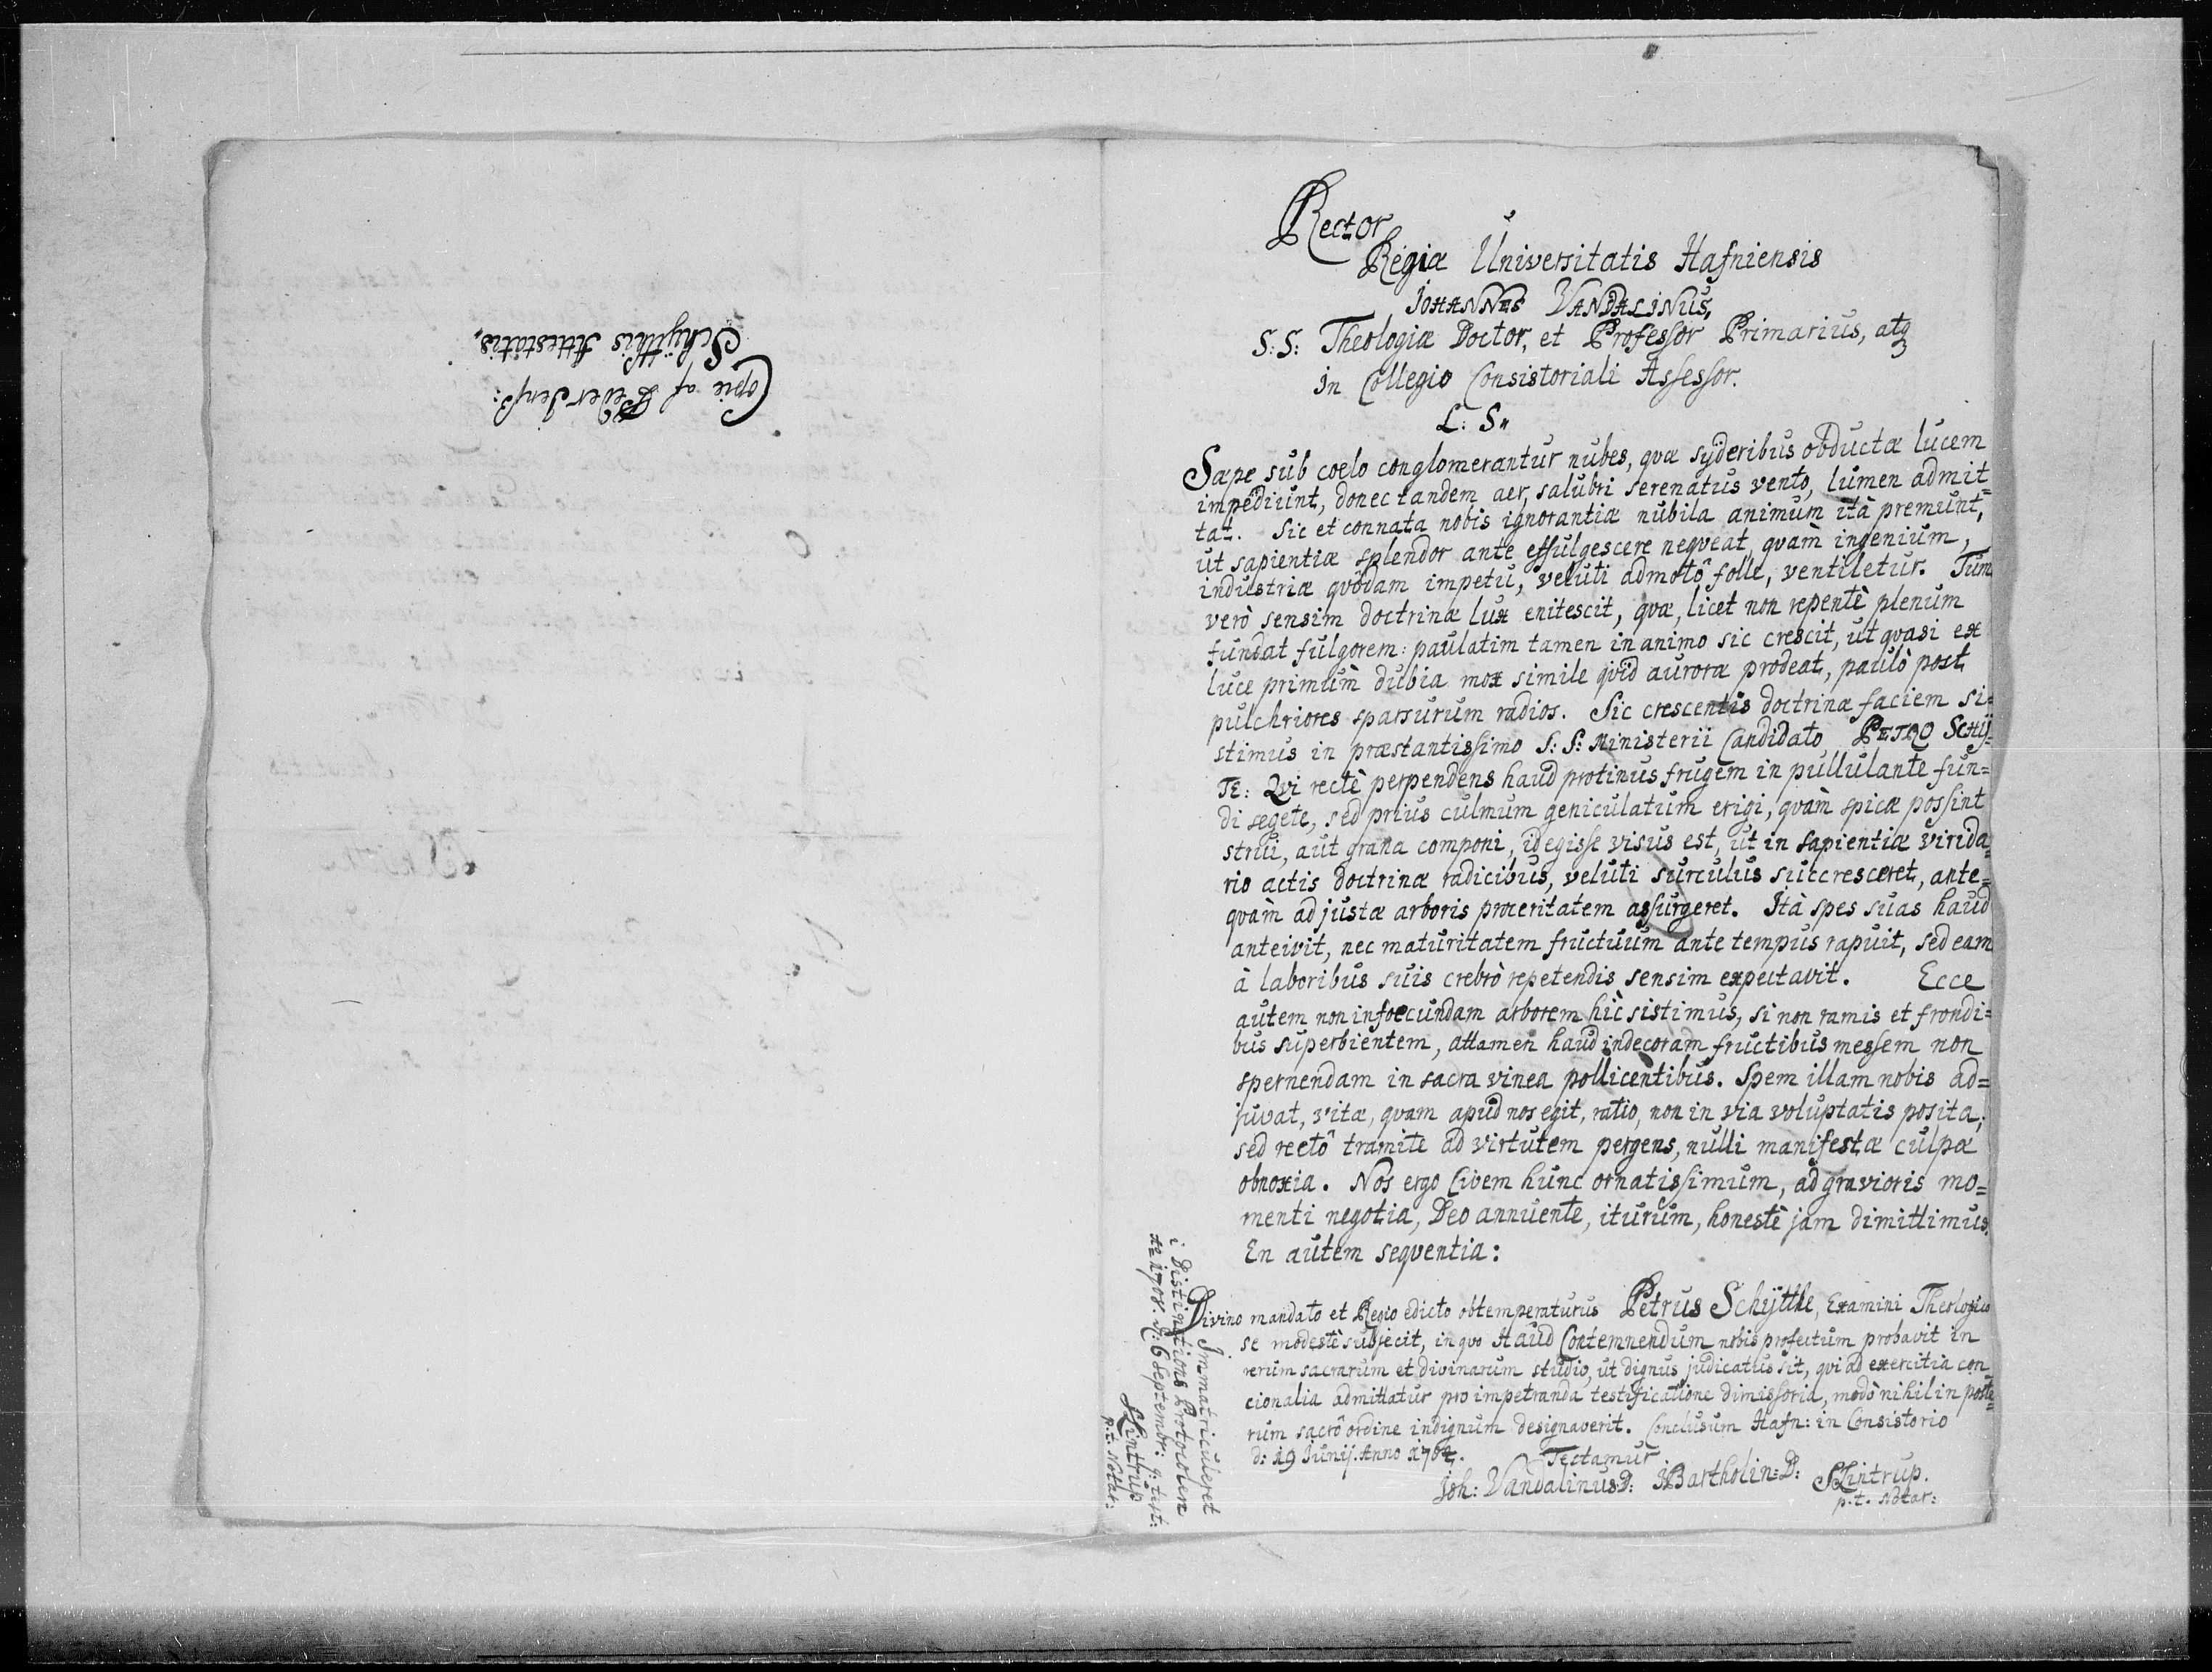 Copie af Peder Jenß:
Schÿtthis Attestatis,
Rector
Regiæ Universitatis Hafniensis
JOHANNES VANDALINUS,
S: S: Theologiæ Doctor, et Professor Primarius, atq3
in Collegio Consistoriali Assessor.
L: S"
Sæpe sub coelo conglomerantur nubes, qvæ syderibus obductæ lucem
impediunt, donec tandem aer, salubri serenatus vento, lumen admit=
tat. Sic et connata nobis ignorantiæ nubila animum ità premunt,
ut sapientiæ splendor ante effulgescere neqveat, qvam̀ ingenium,
industriæ qvôdam impetu, veluti admotô folle, ventiletur. Tum
verò sensim doctrinæ lux enitescit, qvæ, licet non repentè plenum
fundat fulgorem: paulatim tamen in animo sic crescit, ut qvasi ex
luce primum̀ dubia mox simile qvid auroræ prodeat, paulò post
pulchriores sparsurum radios. Sic crescentis doctrinæ faciem si=
stimus in præstantissimo S: S: Ministerii Candidato, PETRO SCHŸ=
TE: Qvi rectè perpendens haud protinus frugem in pullulante fun=
di segete, sed prius culmum geniculatum erigi, qvam̀ spicæ possint
strui, aut grana componi, id egisse visus est, ut in sapientiæ virida=
rio actis doctrinæ radicibus, veluti surculus succresceret, ante=
qvam̀ ad justæ arboris proceritatem assurgeret. Ità spes suas haud
anteivit, nec maturitatem fructuum ante tempus rapuit, sed eam
à laboribus suis crebrò repetendis sensim expectavit. Ecce
autem non infoecundam arborem hìc sistimus, si non ramis et frondi=
bus superbientem, attamen haud indecoram fructibus messem non
spernendam in sacra vinea pollicentibus. Spem illam nobis ad=
juvat, vitæ, qvam apud nos egit, ratio, non in via voluptatis posita,
sed rectô tramite ad virtutem pergens, nulli manifestæ culpæ
obnoxia. Nos ergo Civem hunc ornatissimum, ad gravioris mo=
menti negotia, Deo annuente, iturum, honestè jam dimittimus.
En autem seqventia:
Divino mandato et Regio edicto obtemperaturus Petrus Schÿtthe, Examini Theologico
se modestè subjecit, in qvo Haud Contemnendum nobis profectum probavit in
rerum sacrarum et divinarum studio, ut dignus judicatus sit, qvi ad exercitia con=
cionalia admittatur pro impetranda testificatione dimissoria, modò nihil in poste=
rum sacrô ordine indignum designaverit. Conclusum Hafn: in Consistorio
d: 19 Junij. Anno 1704.
Testamur
Joh: Vandalinus. D: Bartholin: D: SLintrup.
p. t. Notar:
Immatriculeret
i Distinctions Protocolen
Ao 1708. d: 6 Septembr:
SLintrup
p. t. Notar: